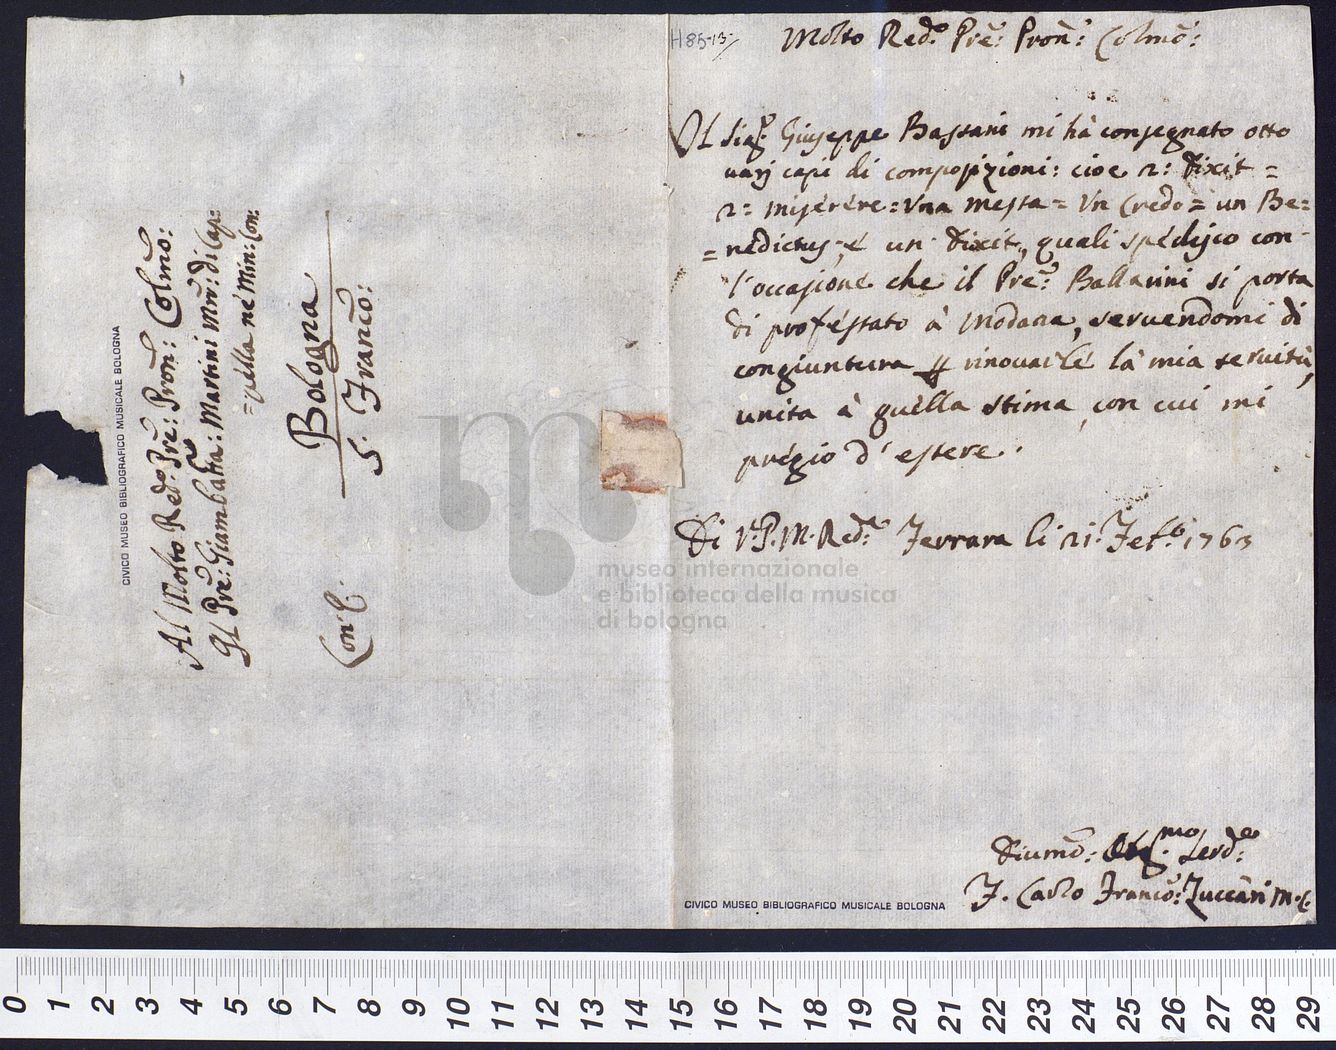 H85-13
Molto Red.º Pre: Pron: Colmo:
Il Sigr: Giuseppe Bassani mi hà consegnato otto
varj capi di composizioni: cioe 2: Dixit =
2: miserére = Una messa = Un Credo = un Be=
=nedictus, é un Dixit, quali spédisco con
l'occasione che il Pre: Ballarini si porta
di proféssato à Modana, servendomi di
congiuntura rinovarlé là mia servitù,
unita à quélla stima, con cui mi
prégio d'éssere.
Di V. P. M. Red.ª Ferrara li 21: Feb.º 1763
Divmo: Obl.mo Serd.e
F. Carlo Franco: Zuccari M. C.
CIVICO MUSEO BIBLIOGRAFICO MUSICALE BOLOGNA
Al Molto Red.º Pre: Pron: Colmo:
Il Pre: Giambatta: Martini Mro: di Cap:
=pélla né Min: Con:
Bologna
S. Franco:
Con C.
CIVICO MUSEO BIBLIOGRAFICO MUSICALE BOLOGNA
museo internazionale
e biblioteca della musica
di bologna
0 1 2 3 4 5 6 7 8 9 10 11 12 13 14 15 16 17 18 19 20 21 22 23 24 25 26 27 28 29